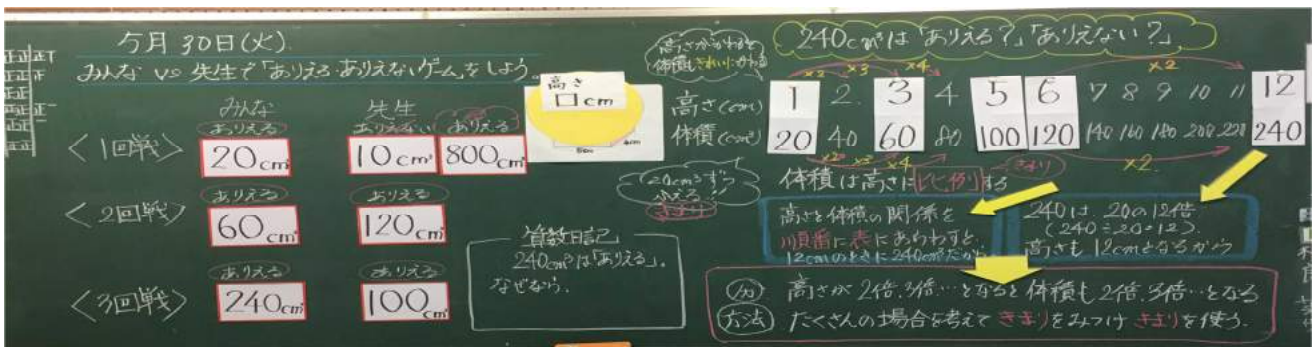 5月30日(火)
みんな vs 先生で「ありえる ありえないゲーム」をしよう。
みんな 先生
<1回戦>
ありえる ありえない ありえる
20cm³ 10cm³ 800cm³
<2回戦>
ありえる ありえる
60cm³ 120cm³
<3回戦>
ありえる ありえる
240cm³ 100cm³
高さ
□cm
算数日記
240cm³は「ありえる」。
なぜなら、
20cm³ずつ
ふえる!
きまり
高さがかわると
体積もきれいにかわる
240cm³は「ありえる?」「ありえない?」
×2 ×3 ×4 ×2
高さ(cm) 1 2 3 4 5 6 7 8 9 10 11 12
体積(cm³) 20 40 60 80 100 120 140 160 180 200 220 240
×2 ×3 ×4 ×2
きまり
体積は高さに「比例」する
高さと体積の関係を
順番に表にあらわすと
12cmのときに240cm³だから
240は20の12倍
(240÷20=12)
高さも12cmとなるから
分 高さが2倍、3倍…となると体積も2倍、3倍…となる
方法 たくさんの場合を考えてきまりをみつけきまりを使う。